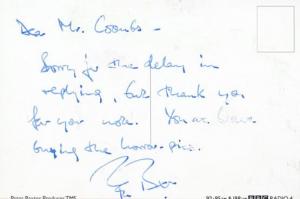 Dear Mr. Coombs -
Sorry for the delay in
replying, but thank you
for your note. You are brave
buying the horror-pic.
Peter Baxter Producer TMS
92-95 FM & 198 LW BBC RADIO 4